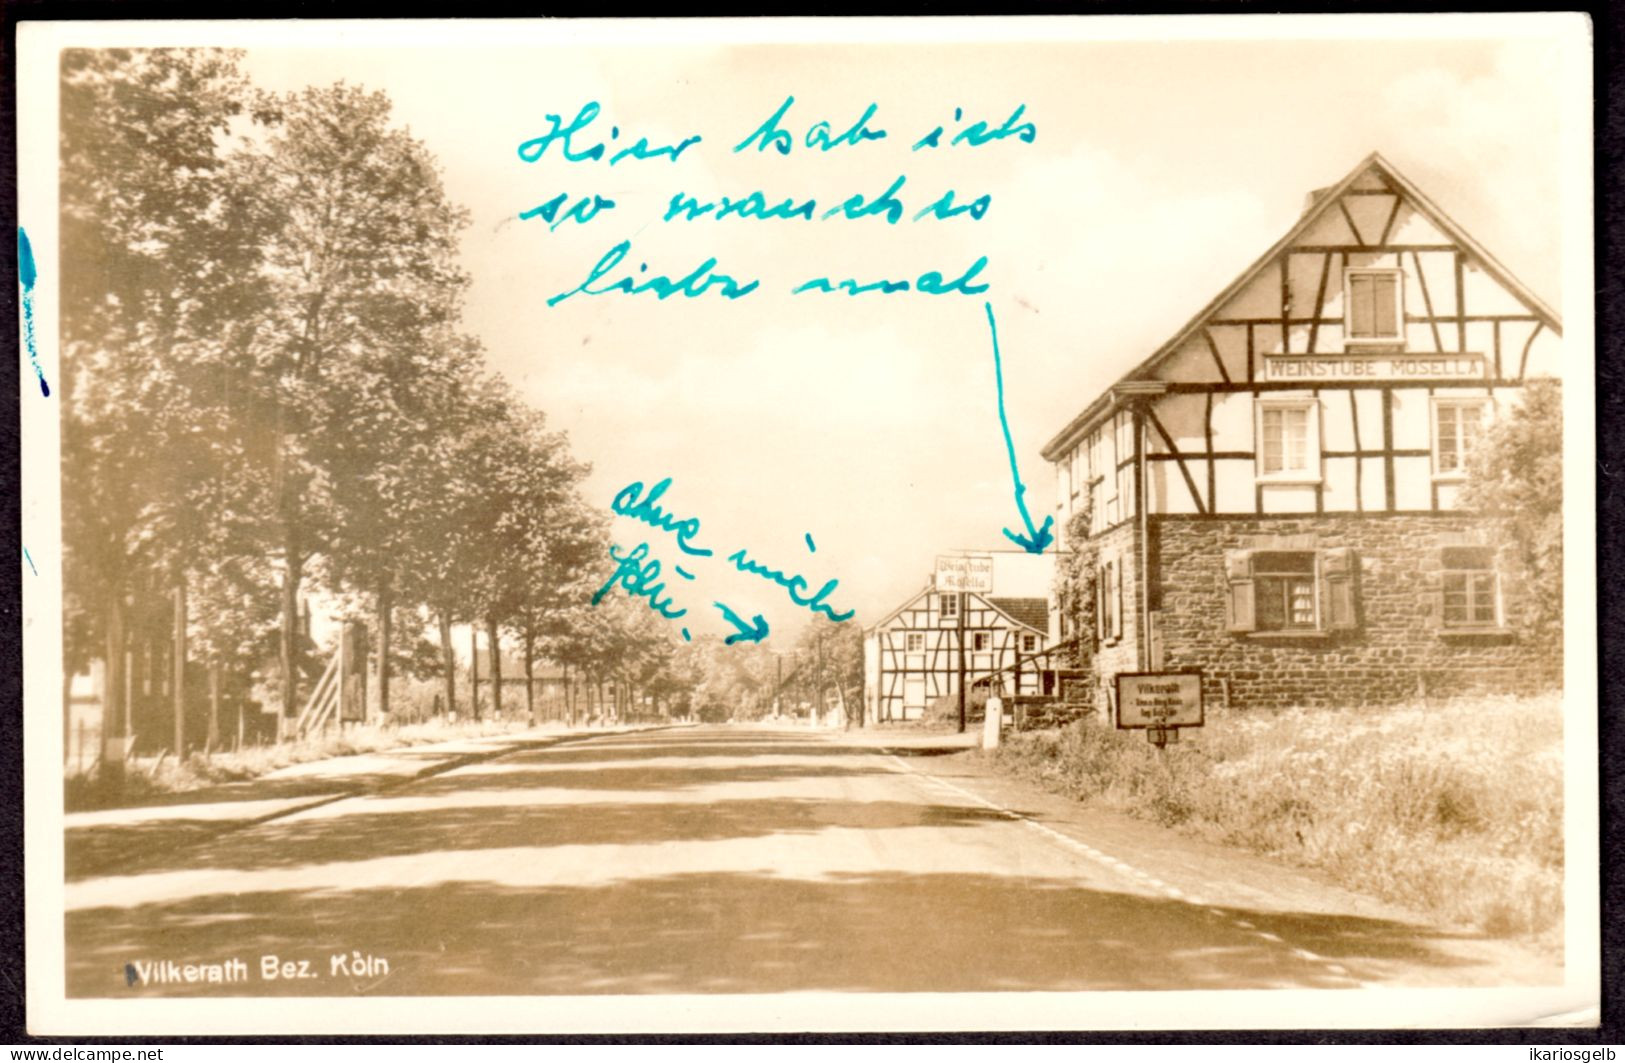 Hier hab ich
so manches
liebe mal
ohne mich
WEINSTUBE MOSELLA
Weinstube
Mosella
Vilkerath
Vilkerath Bez. Köln
www.delcampe.net
ikariosgelb